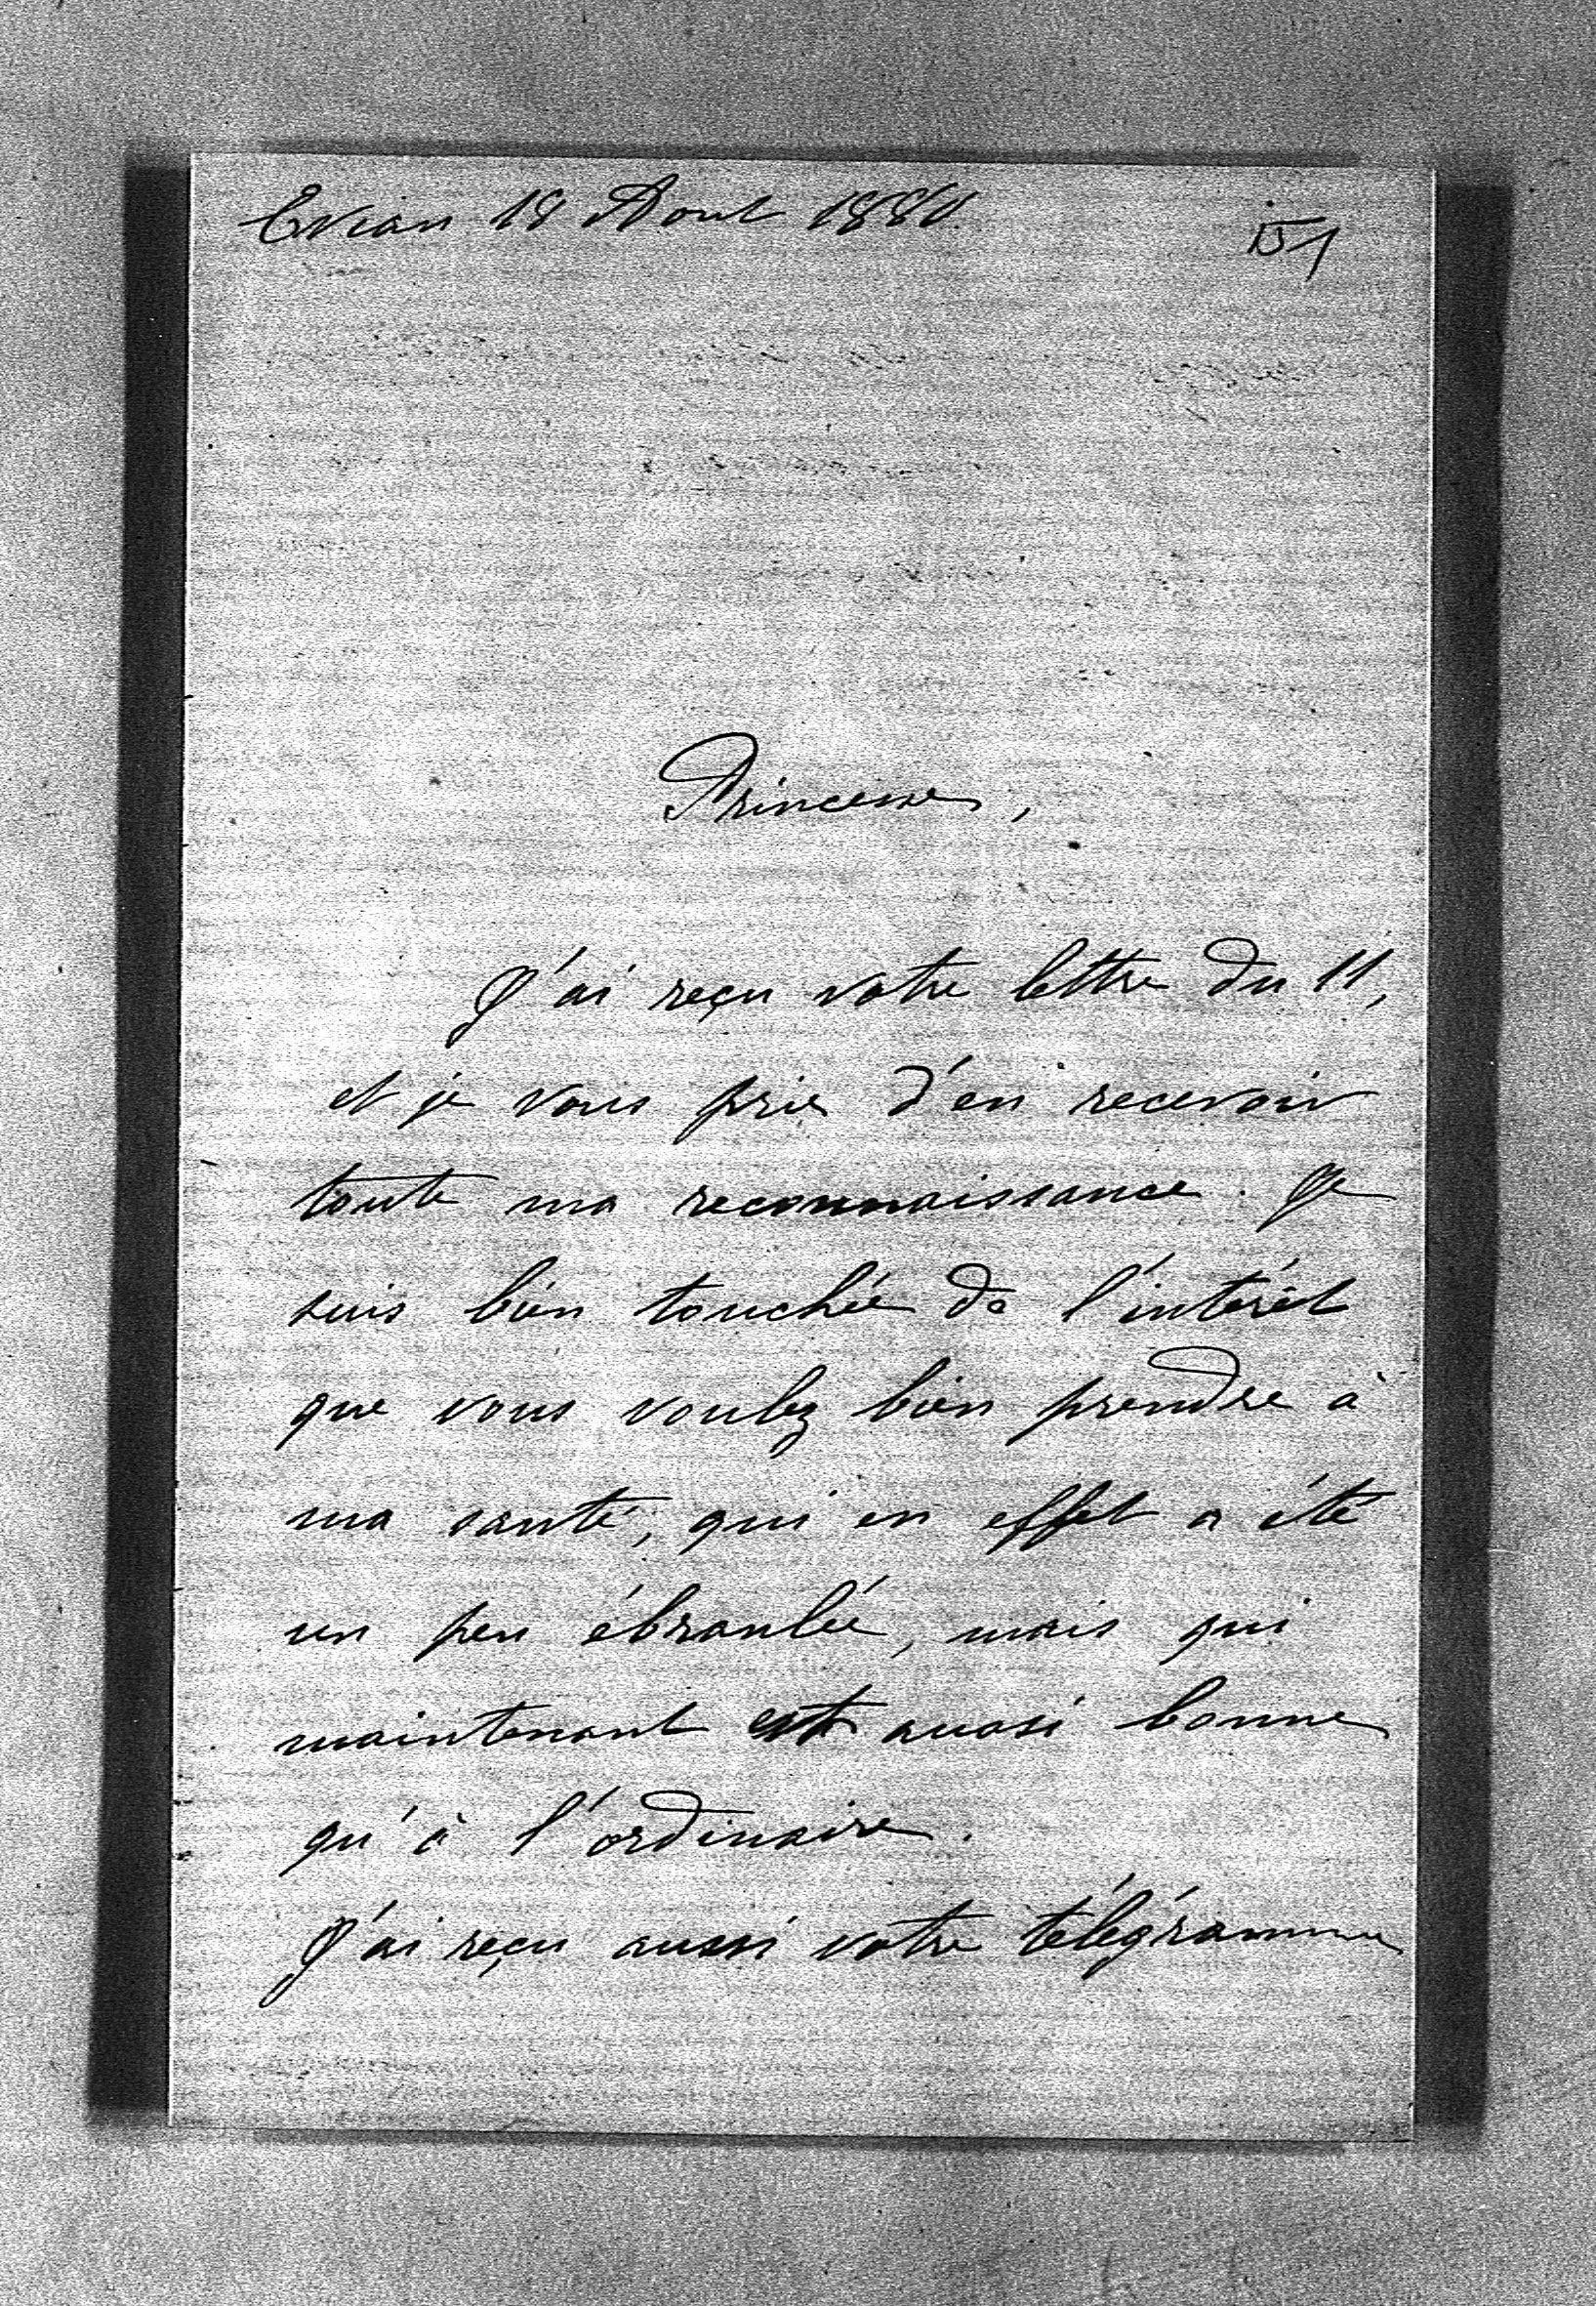 Evian 18 Aout 1880.
151
Princesse,
J'ai reçu votre lettre du 11,
et je vous prie d'en recevoir
toute ma reconnaissance. Je
suis bien touchée de l'intérêt
que vous voulez bien prendre à
ma santé, qui en effet a été
un peu ébranlée, mais qui
maintenant est aussi bonne
qu'à l'ordinaire.
J'ai reçu aussi votre télégramme